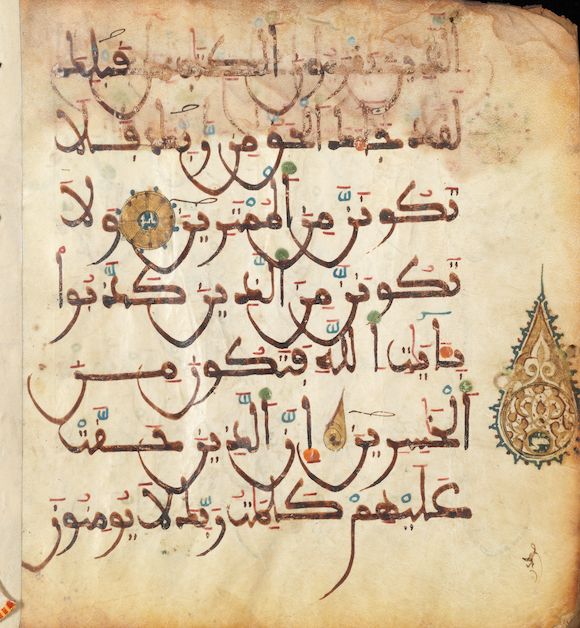 الذين يقرءون الكتب من قبلك
لقد جاءك الحق من ربك فلا
تكونن من الممترين ولا
تكونن من الذين كذبوا
بايت الله فتكون من
الخسرين إن الذين حقت
عليهم كلمت ربك لا يومنون